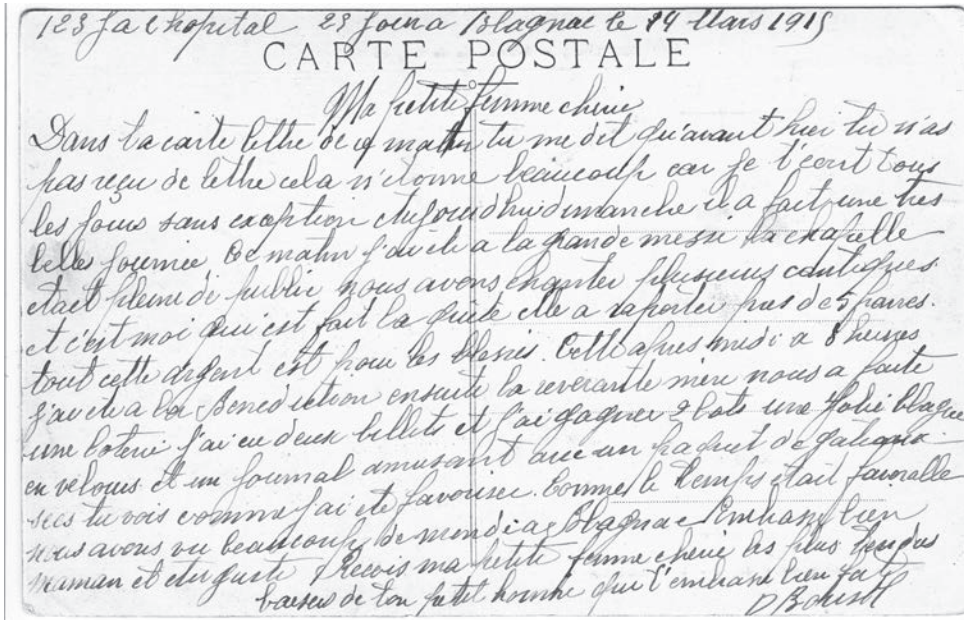 123 Ja l hopital 23 Jour a Blagnac le 14 Mars 1915
CARTE POSTALE
Ma petite femme cherie
Dans ta carte lettre de ce matin tu me dit qu'avant hier tu n'as
pas reçu de lettre cela m'etonne beaucoup car je t'ecrit tous
les jours sans exception aujourd'hui dimanche il a fait une tres
belle journee. Ce matin j'ai ete a la grande messe la chapelle
etait pleine de public nous avons chanter plusieurs cantiques
et c'est moi qui est fait la quete elle a raporter pres de 5 francs.
tout cette argent est pour les blesses. Cette apres midi a heures
j'ai ete a la Benediction ensuite la reverante mere nous a faite
une loterie j'ai eu deux billets et j'ai gagner 2 lots une Jolie blague
en velours et un journal amusant avec un paquet de gateaux
secs tu vois comme j'ai ete favoriser. Comme le temps etait favorable
nous avons vu beaucoup de monde a Blagnac Embrasse bien
maman et auguste Recois ma petite femme cherie les plus tendres
baisers de ton petit homme qui t'embrasse bien fort